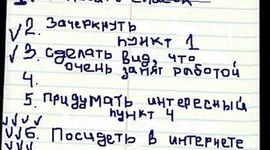 2. Зачеркнуть
пункт 1
3. Сделать вид, что
очень занят работой
4.
5. Придумать интересный
пункт 4
6. Посидеть в интернете